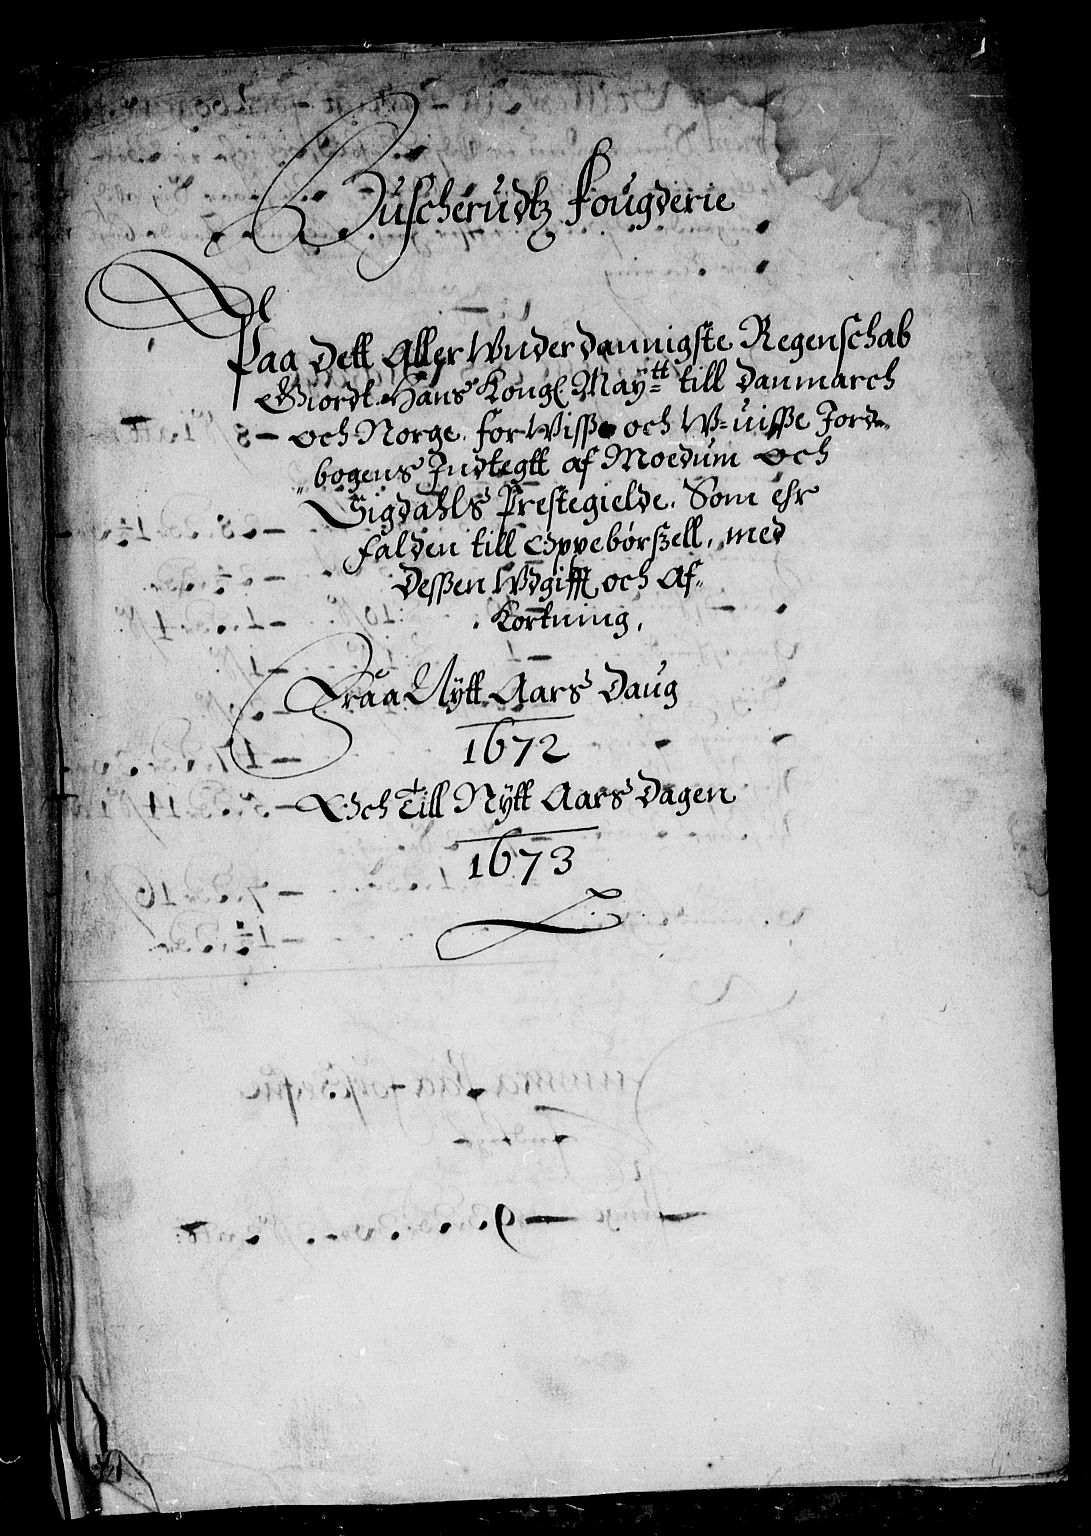 Buscherudtz fougderie
Paa Dett Aller Wnderdannigste Regenschab
Giordt Hans Kongl Maytt till Danmarch
och Norge, for Wisse och W=uisse Jord=
bogens Indtegtt af Moedum och
Sigdahls Prestegielde. Som ehr
falden till Oppebørszell, med
Dessen Wdgifft och Af=
Kortning,
Fraa Nytt Aars Daug
1672
Och Till Nytt Aars Dagen
1673